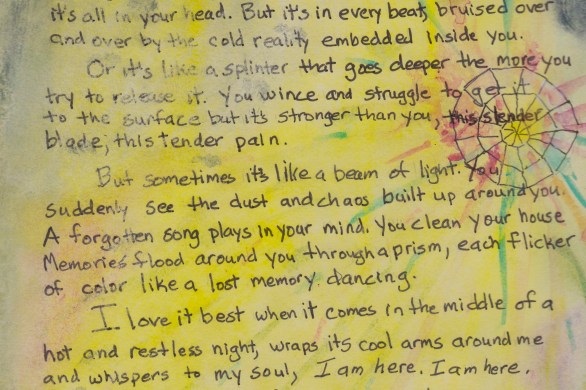 it's all in your head. But it's in every beat, bruised over
and over by the cold reality embedded inside you.
Or it's like a splinter that goes deeper the more you
try to release it. You wince and struggle to get it
to the surface but it's stronger than you, this slender
blade, this tender pain.
But sometimes it's like a beam of light. You
suddenly see the dust and chaos built up around you.
A forgotten song plays in your mind. You clean your house
Memories flood around you through a prism, each flicker
of color like a lost memory dancing.
I love it best when it comes in the middle of a
hot and restless night, wraps its cool arms around me
and whispers to my soul, I am here. I am here.